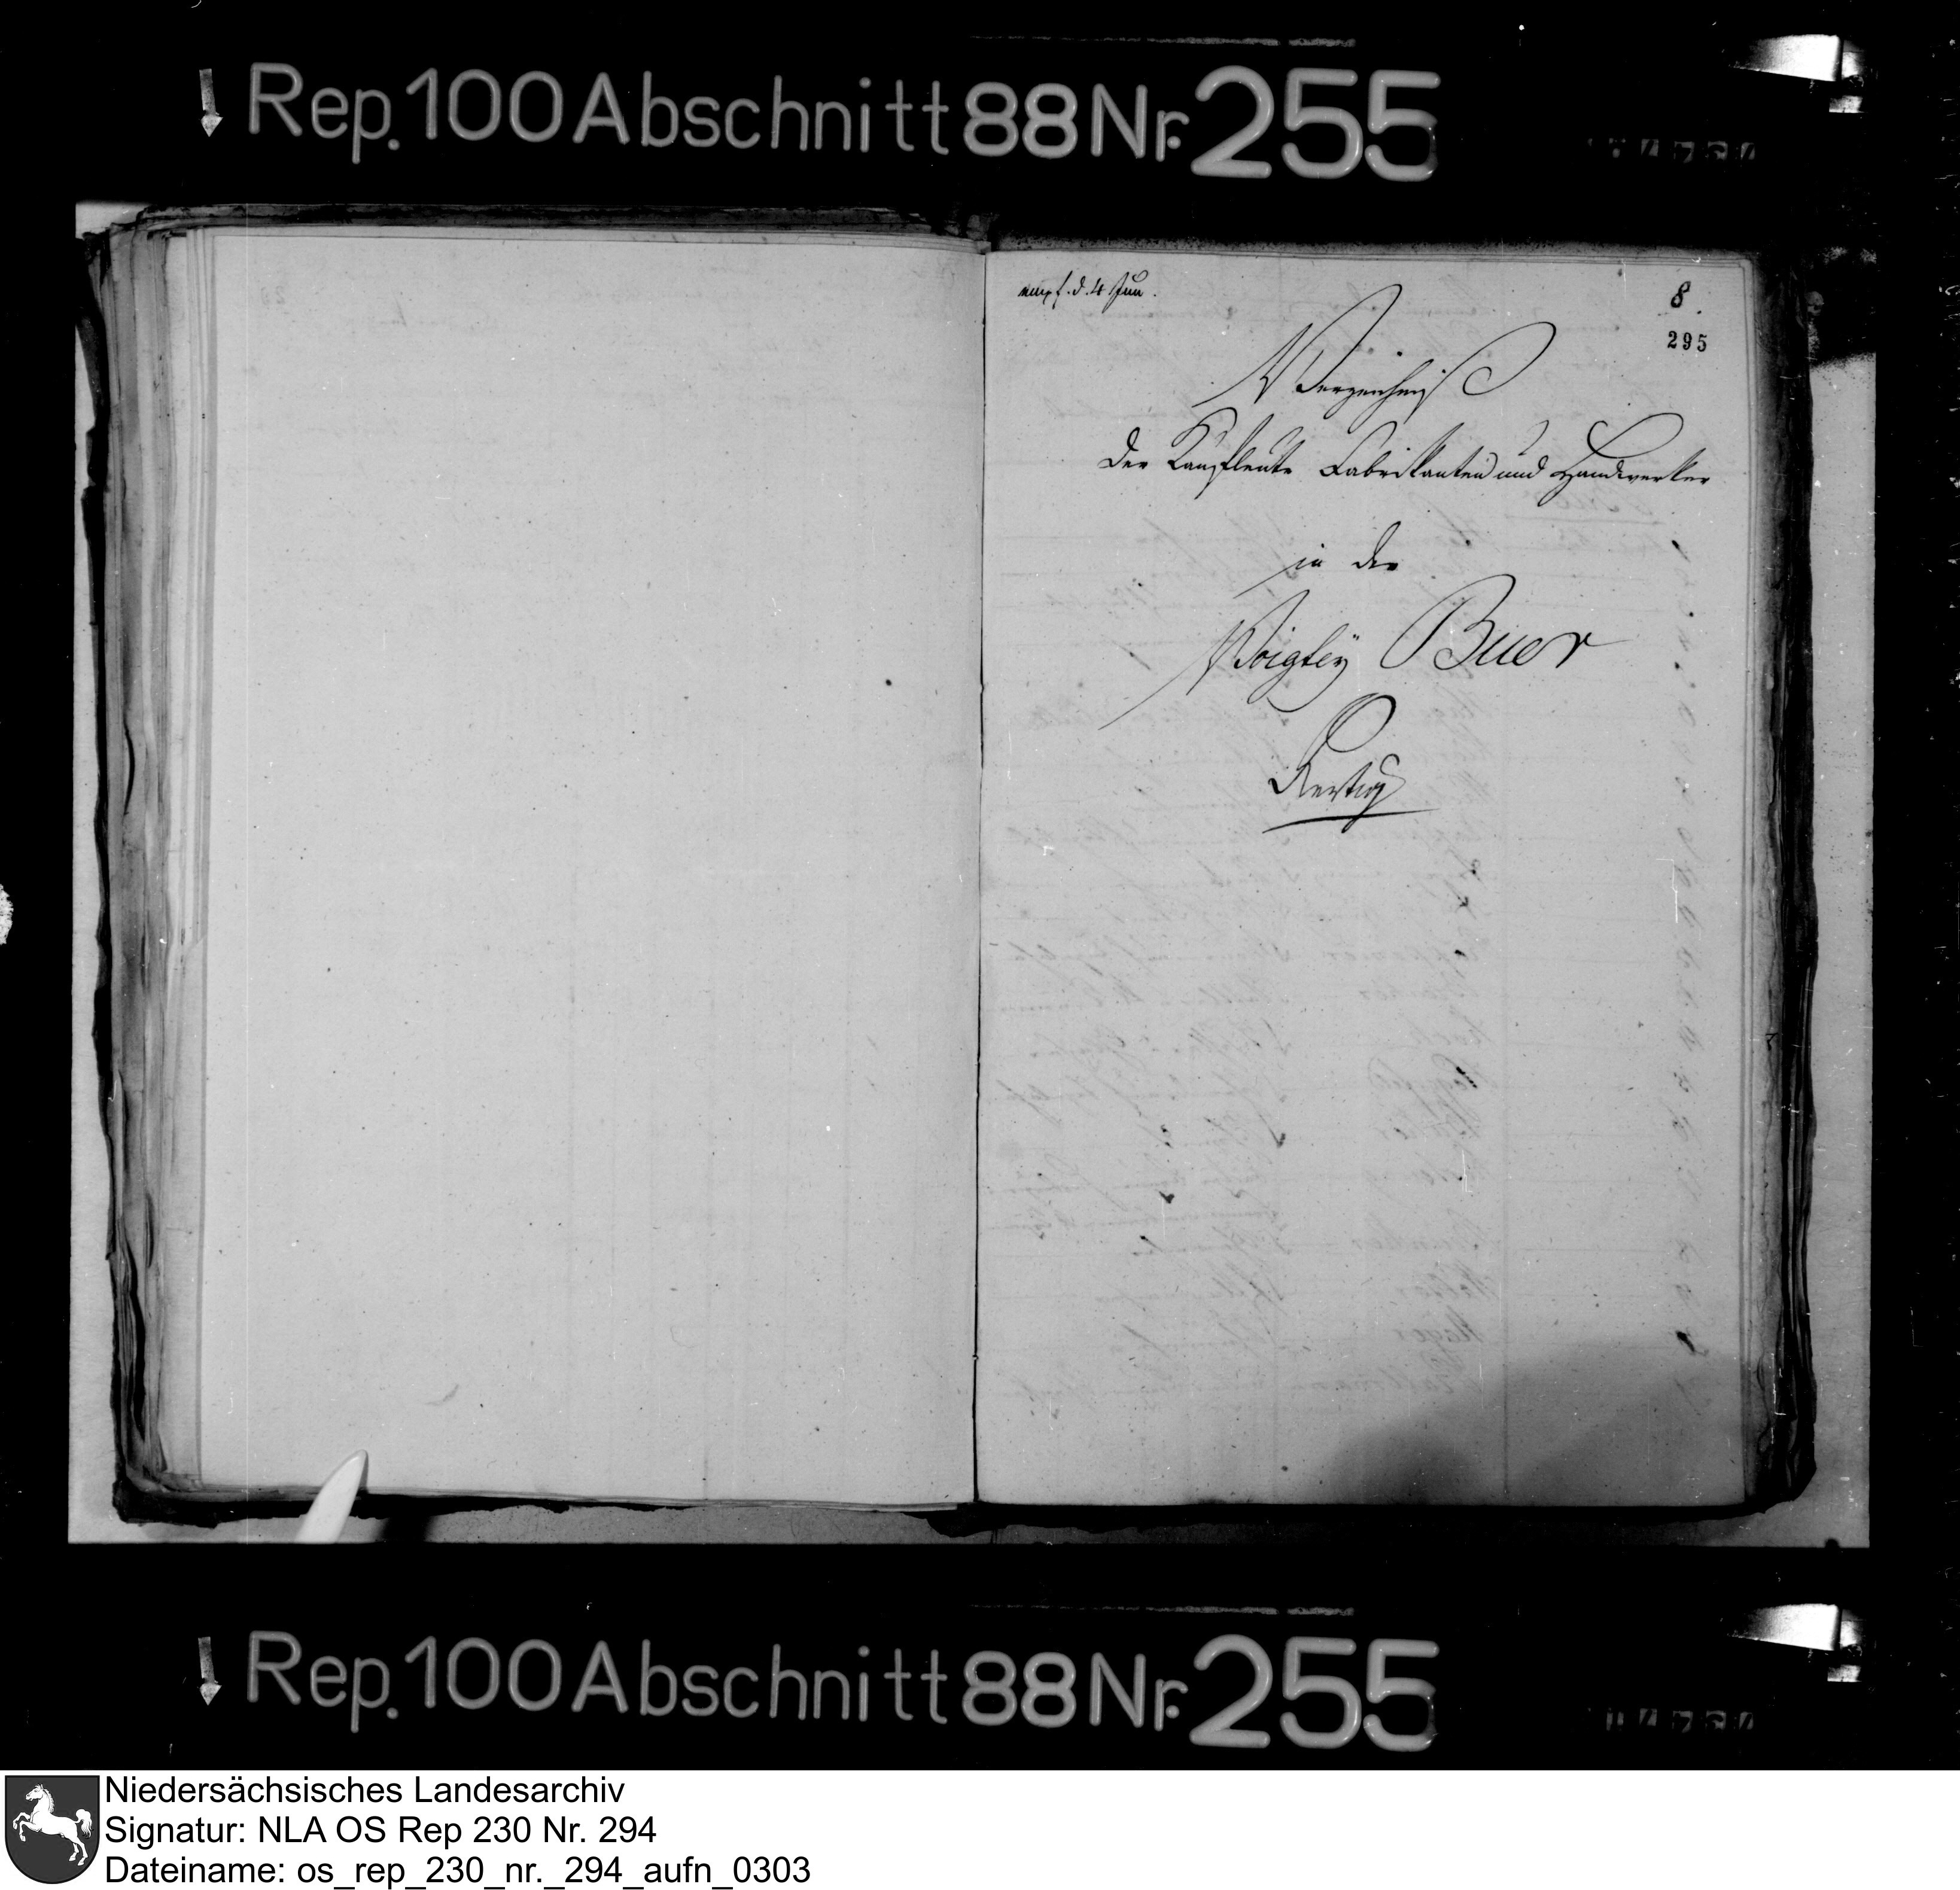 Rep. 100 Abschnitt 88 Nr. 255
empf. d. 4 Jun.
8.
295
Verzeichniß
der Kaufleute Fabrikanten und Handwerker
in der
Voigtey Buer
Rep. 100 Abschnitt 88 Nr. 255
Niedersächsisches Landesarchiv
Signatur: NLA OS Rep 230 Nr. 294
Dateiname: os_rep_230_nr._294_aufn_0303